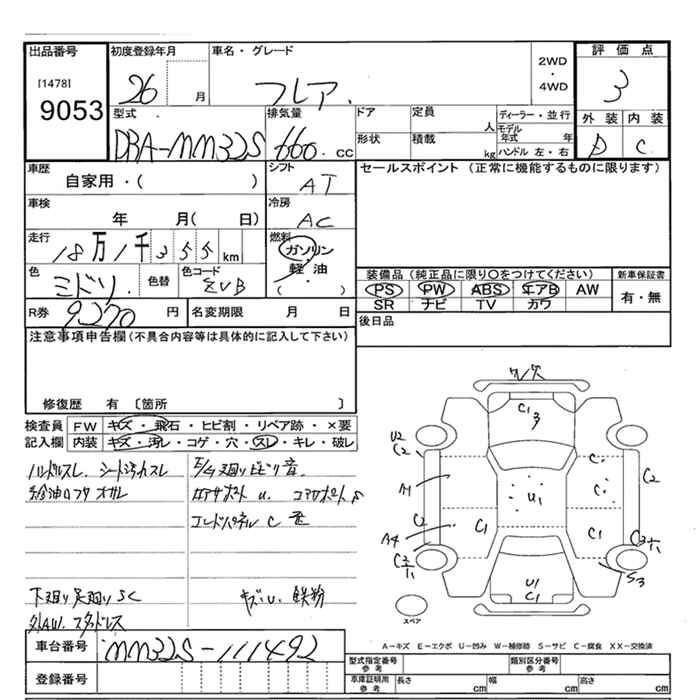 出品番号 初度登録年月 車名・グレード 2WD・4WD 評価点
[1478]
9053 26 月 フレア 3
型式 排気量 ドア 定員 人 ディーラー・並行 外装 内装
DBA-MM32S 660 CC 形状 積載 kg モデル年式 年 ハンドル 左・右 D C
車歴 シフト セールスポイント (正常に機能するものに限ります)
自家用・( ) AT
車検 冷房
年 月( 日) AC
走行 燃料
18万1千355km ガソリン
軽油
( )
色 色替 色コード 装備品 (純正品に限り○をつけてください) 新車保証書
ミドリ ZVB PS PW ABS エアB AW 有・無
SR ナビ TV カワ
R券 9270 円 名変期限 月 日 後日品
注意事項申告欄(不具合内容等は具体的に記入して下さい)
修復歴 有 〔箇所 〕
検査員 FW キズ・飛石・ヒビ割・リペア跡・×要
記入欄 内装 キズ・汚レ・コゲ・穴・スレ・キレ・破レ
ハンドルスレ シート汚レスレ
給油口フタ
コアサポート
エンドパネル C
下廻り足廻りSC キズ・U 鉄粉
外AW スタッドレス
車台番号 MM32S-111492
登録番号
型式指定番号 参考 類別区分番号 参考
車庫証明用 参考 長さ cm 幅 cm 高さ cm
C1 3
U2
C2
C1
C2
A1
U1
C1
C2
C1
C1
A4
S3
U1
C1
スペア
A-キズ E-エクボ U-凹み W-補修跡 S-サビ C-腐食 XX-交換済